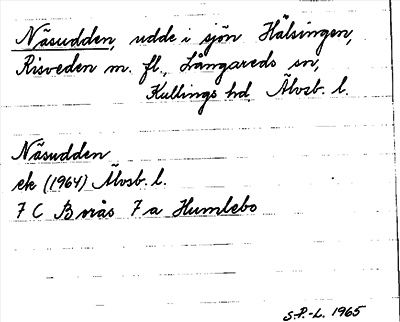 Näsudden, udde i sjön Hälsingen,
Risveden m. fl., Långareds sn,
Kullings hd, Älvsb. l.
Näsudden
ek (1964) Älvsb. l.
7 C Borås 7 a Humlebo
S.P.-L. 1965